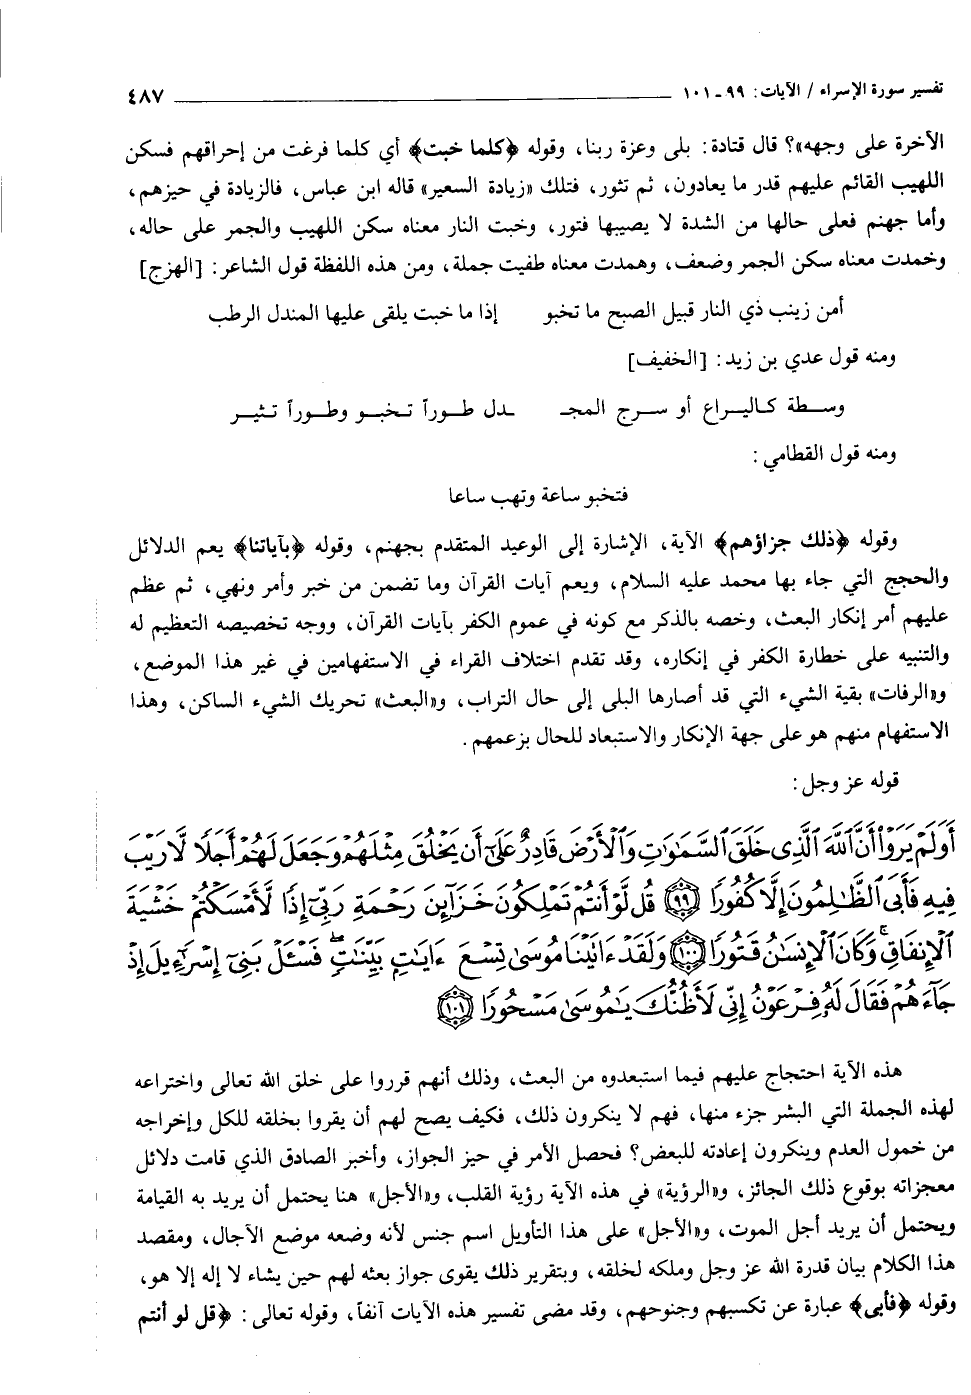 تفسير سورة الإسراء / الآيات: ٩٩-١٠١ ٤٨٧
الآخرة على وجهه»؟ قال قتادة: بلى وعزة ربنا، وقوله ﴿كلما خبت﴾ أي كلما فرغت من إحراقهم فسكن
اللهيب القائم عليهم قدر ما يعادون، ثم تثور، فتلك «زيادة السعير» قاله ابن عباس، فالزيادة في حيزهم،
وأما جهنم فعلى حالها من الشدة لا يصيبها فتور، وخبت النار معناه سكن اللهيب والجمر على حاله،
وخمدت معناه سكن الجمر وضعف، وهمدت معناه طفيت جملة، ومن هذه اللفظة قول الشاعر: [الهزج]
أمن زينب ذي النار قبيل الصبح ما تخبو إذا ما خبت يلقى عليها المندل الرطب
ومنه قول عدي بن زيد: [الخفيف]
وسطة كاليراع أو سرج المجـ ـدل طوراً تخبو وطوراً تثير
ومنه قول القطامي:
فتخبو ساعة وتهب ساعا
وقوله ﴿ذلك جزاؤهم﴾ الآية، الإشارة إلى الوعيد المتقدم بجهنم، وقوله ﴿بآياتنا﴾ يعم الدلائل
والحجج التي جاء بها محمد عليه السلام، ويعم آيات القرآن وما تضمن من خبر وأمر ونهي، ثم عظم
عليهم أمر إنكار البعث، وخصه بالذكر مع كونه في عموم الكفر بآيات القرآن، ووجه تخصيصه التعظيم له
والتنبيه على خطارة الكفر في إنكاره، وقد تقدم اختلاف القراء في الاستفهامين في غير هذا الموضع،
و«الرفات» بقية الشيء التي قد أصارها البلى إلى حال التراب، و«البعث» تحريك الشيء الساكن، وهذا
الاستفهام منهم هو على جهة الإنكار والاستبعاد للحال بزعمهم.
قوله عز وجل:
أَوَلَمْ يَرَوْا۟ أَنَّ ٱللَّهَ ٱلَّذِى خَلَقَ ٱلسَّمَٰوَٰتِ وَٱلْأَرْضَ قَادِرٌ عَلَىٰٓ أَن يَخْلُقَ مِثْلَهُمْ وَجَعَلَ لَهُمْ أَجَلًا لَّا رَيْبَ
فِيهِ فَأَبَى ٱلظَّٰلِمُونَ إِلَّا كُفُورًا ﴿٩٩﴾ قُل لَّوْ أَنتُمْ تَمْلِكُونَ خَزَآئِنَ رَحْمَةِ رَبِّىٓ إِذًا لَّأَمْسَكْتُمْ خَشْيَةَ
ٱلْإِنفَاقِ ۚ وَكَانَ ٱلْإِنسَٰنُ قَتُورًا ﴿١٠٠﴾ وَلَقَدْ ءَاتَيْنَا مُوسَىٰ تِسْعَ ءَايَٰتٍۭ بَيِّنَٰتٍ ۖ فَسْـَٔلْ بَنِىٓ إِسْرَٰٓءِيلَ إِذْ
جَآءَهُمْ فَقَالَ لَهُۥ فِرْعَوْنُ إِنِّى لَأَظُنُّكَ يَٰمُوسَىٰ مَسْحُورًا ﴿١٠١﴾
هذه الآية احتجاج عليهم فيما استبعدوه من البعث، وذلك أنهم قرروا على خلق الله تعالى واختراعه
لهذه الجملة التي البشر جزء منها، فهم لا ينكرون ذلك، فكيف يصح لهم أن يقروا بخلقه للكل وإخراجه
من خمول العدم وينكرون إعادته للبعض؟ فحصل الأمر في حيز الجواز، وأخبر الصادق الذي قامت دلائل
معجزاته بوقوع ذلك الجائز، و«الرؤية» في هذه الآية رؤية القلب، و«الأجل» هنا يحتمل أن يريد به القيامة
ويحتمل أن يريد أجل الموت، و«الأجل» على هذا التأويل اسم جنس لأنه وضعه موضع الآجال، ومقصد
هذا الكلام بيان قدرة الله عز وجل وملكه لخلقه، وبتقرير ذلك يقوى جواز بعثه لهم حين يشاء لا إله إلا هو،
وقوله ﴿فأبى﴾ عبارة عن تكسبهم وجنوحهم، وقد مضى تفسير هذه الآيات آنفاً، وقوله تعالى: ﴿قل لو أنتم